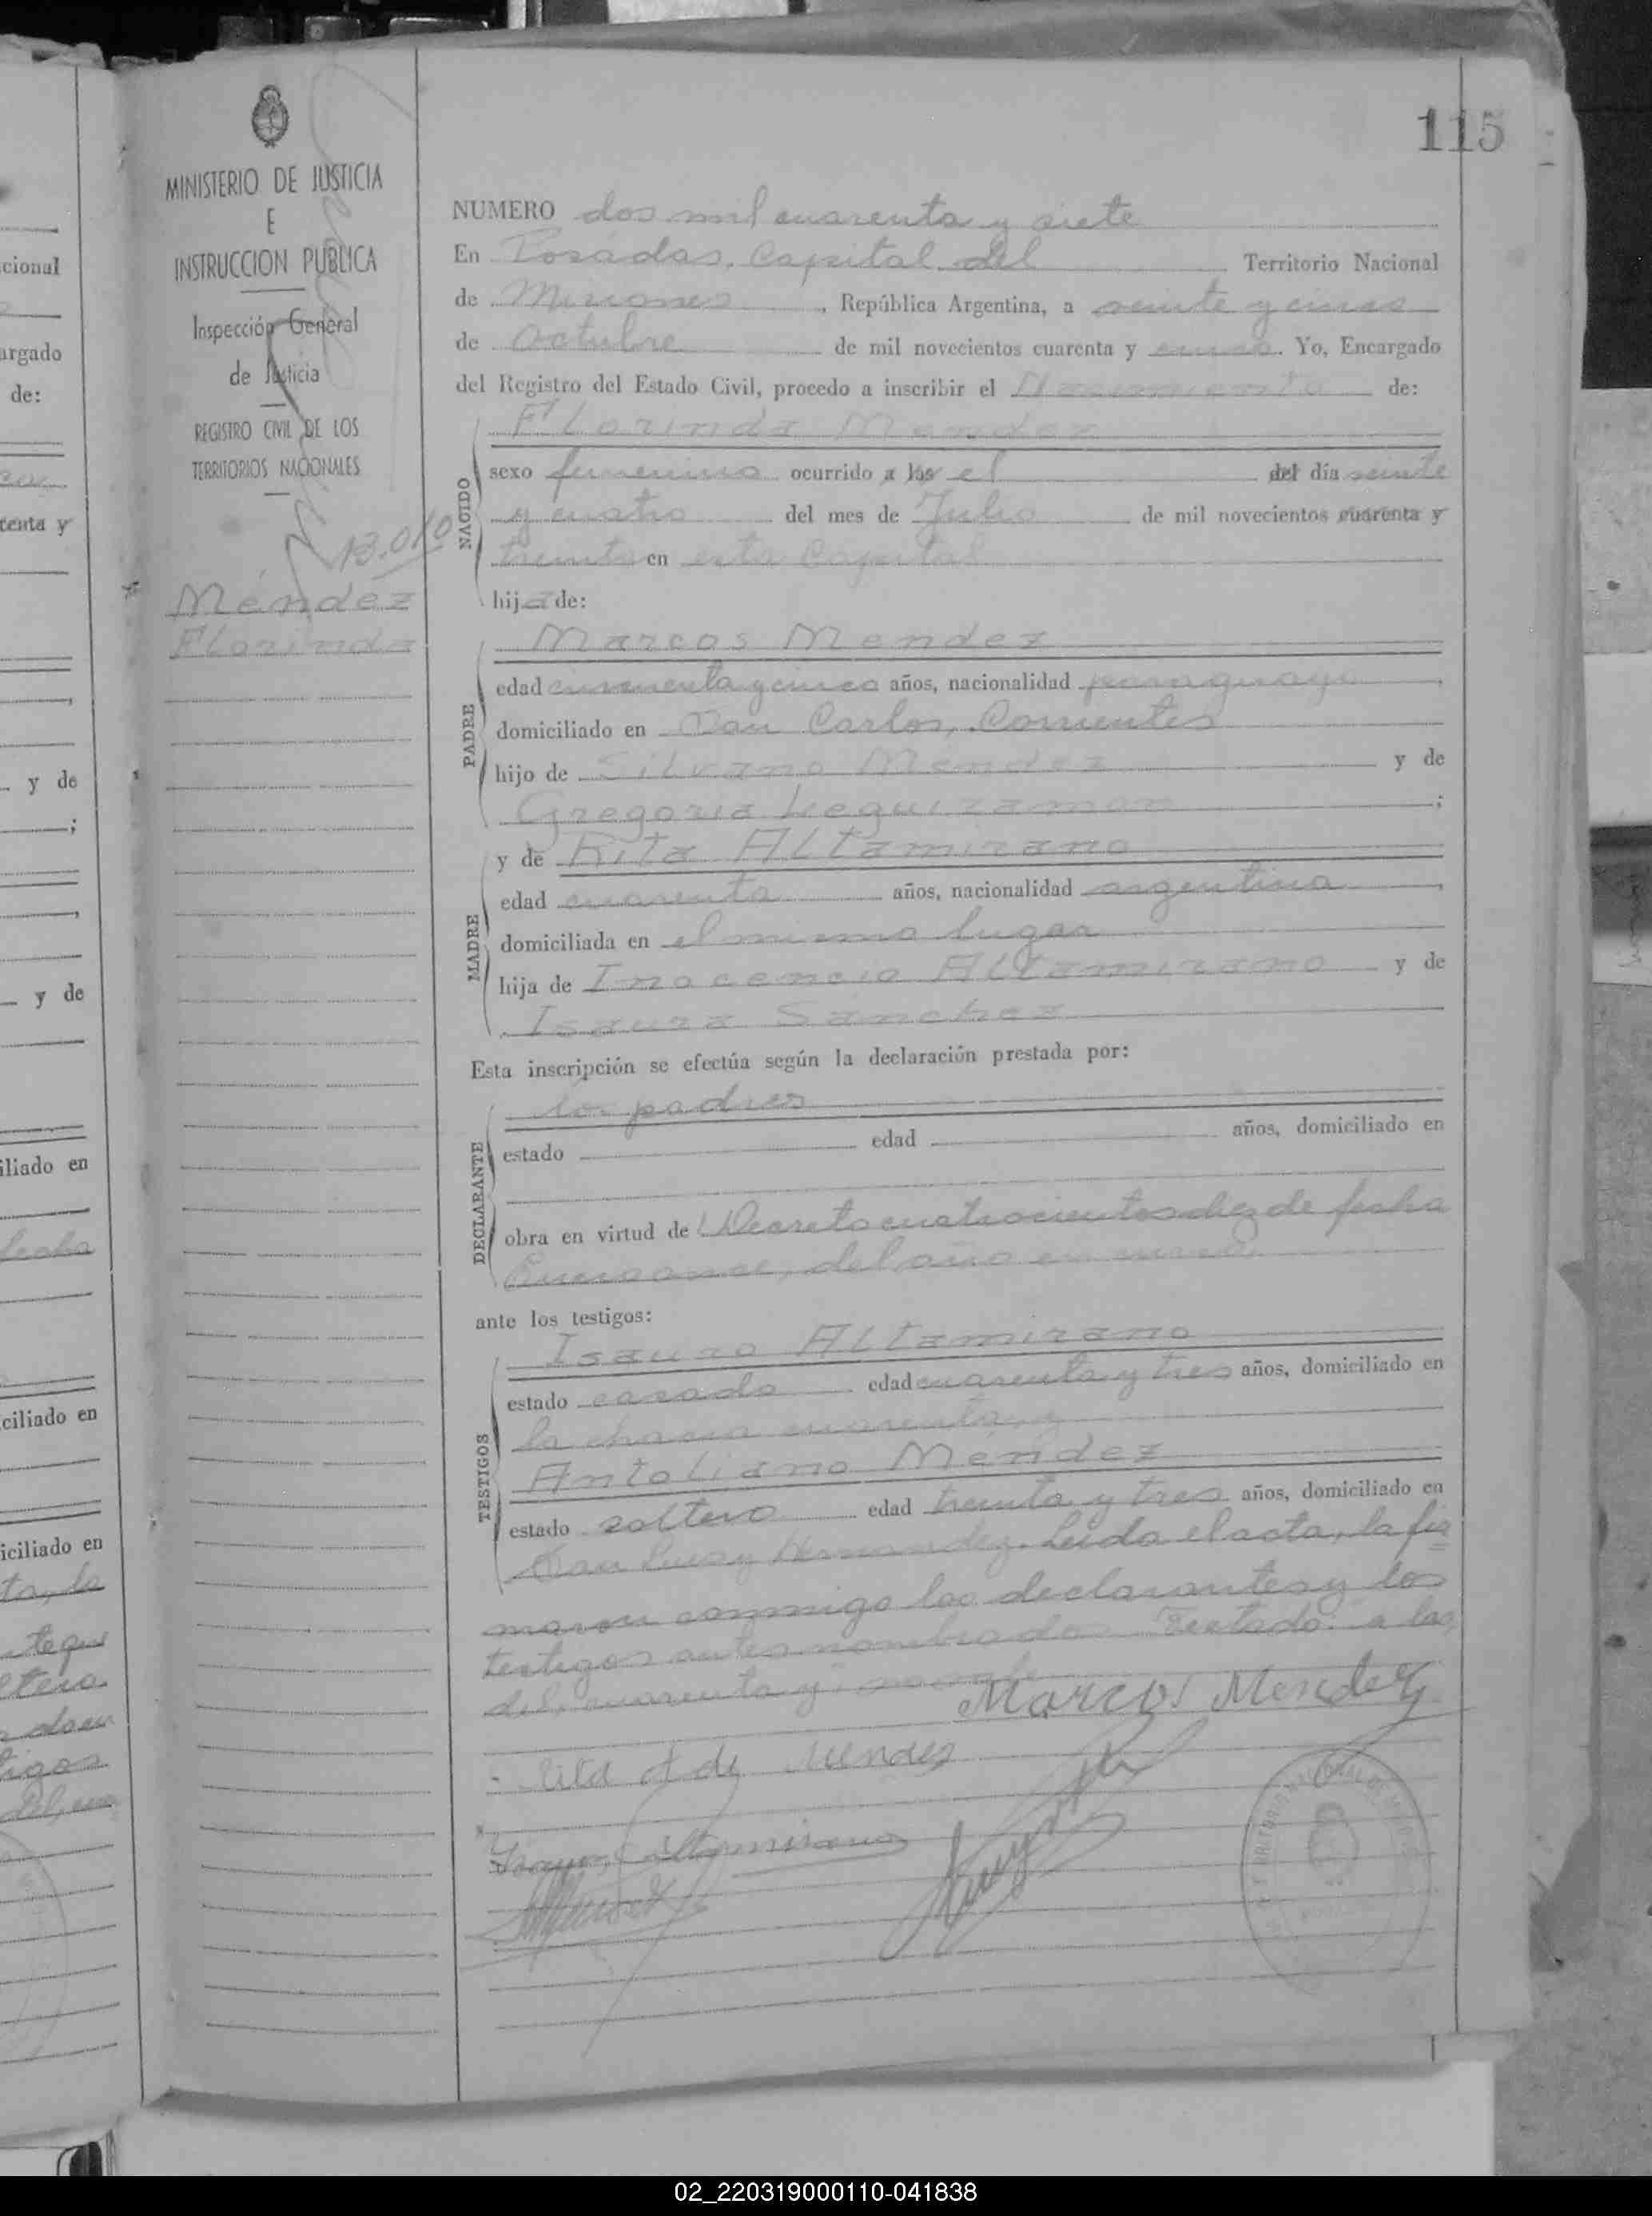 115
MINISTERIO DE JUSTICIA
E
INSTRUCCION PUBLICA
Inspección General
de Justicia
REGISTRO CIVIL DE LOS
TERRITORIOS NACIONALES
13.010
Méndez
Florinda
NUMERO dos mil cuarenta y siete
En Posadas, Capital del Territorio Nacional
de Misiones, República Argentina, a veinte y cinco
de Octubre de mil novecientos cuarenta y cinco. Yo, Encargado
del Registro del Estado Civil, procedo a inscribir el Nacimiento de:
NACIDO
Florinda Mendez
sexo femenino ocurrido a las el del día veinte
y cuatro del mes de Julio de mil novecientos cuarenta y
treinta en esta Capital
hija de:
PADRE
Marcos Mendez
edad cuarenta y cinco años, nacionalidad paraguaya,
domiciliado en San Carlos, Corrientes
hijo de Silvano Méndez y de
Gregoria Leguizamon;
MADRE
y de Rita Altamirano
edad cuarenta años, nacionalidad argentina,
domiciliada en el mismo lugar
hija de Inocencio Altamirano y de
Isaura Sanchez
Esta inscripción se efectúa según la declaración prestada por:
DECLARANTE
los padres
estado edad años, domiciliado en
obra en virtud de Decreto cuatrocientos diez de fecha
Enero once, del año en curso
ante los testigos:
TESTIGOS
Isauro Altamirano
estado casado edad cuarenta y tres años, domiciliado en
la chacra cuarenta, y
Antoliano Méndez
estado soltero edad treinta y tres años, domiciliado en
San Luis y Hernandez. Leida el acta, la fir
maron conmigo los declarantes y los
testigos antes nombrados. Testado: a las,
del, cuarenta y
Marcos Mendez
Rita A de Mendez
Altamirano
cional
argado
de:
y de
y de
iliado en
fecha
ciliado en
iciliado en
02_220319000110-041838